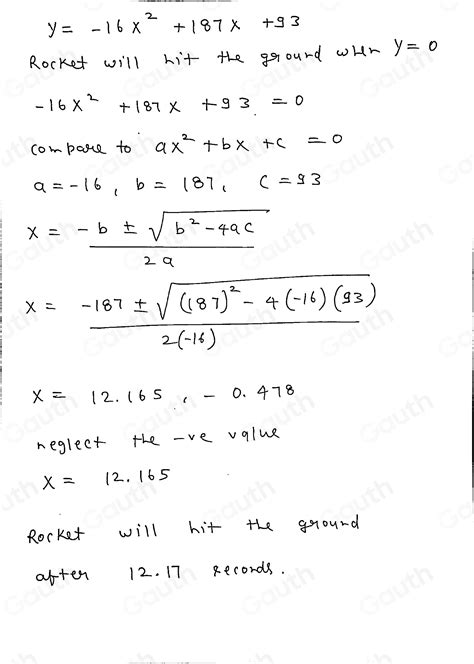 y = -16x² + 187x + 93
Rocket will hit the ground when y = 0
-16x² + 187x + 93 = 0
compare to ax² + bx + c = 0
a = -16, b = 187, c = 93
x = (-b ± √(b² - 4ac)) / 2a
x = (-187 ± √((187)² - 4(-16)(93))) / 2(-16)
x = 12.165, -0.478
neglect the -ve value
x = 12.165
Rocket will hit the ground
after 12.17 seconds.